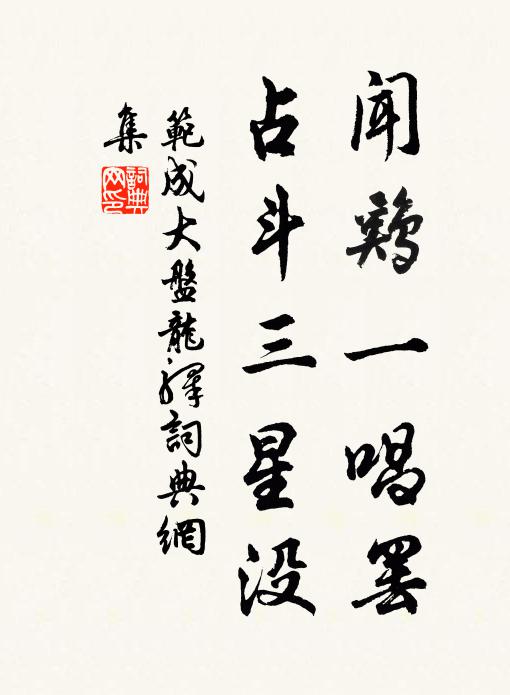 闻鸡一唱罢
占斗三星没
範成大盤龍驛詞典網
集
詞典
网印